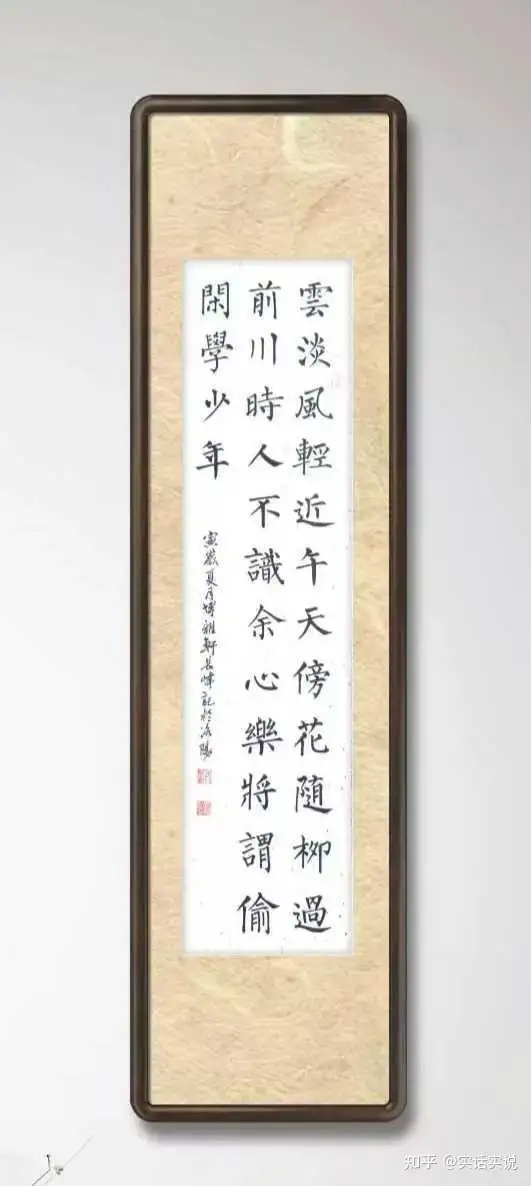 雲淡風輕近午天傍花隨柳過
前川時人不識余心樂將謂偷
閑學少年
寅歲夏月博雅軒長峰記於洛陽
知乎 @实话实说